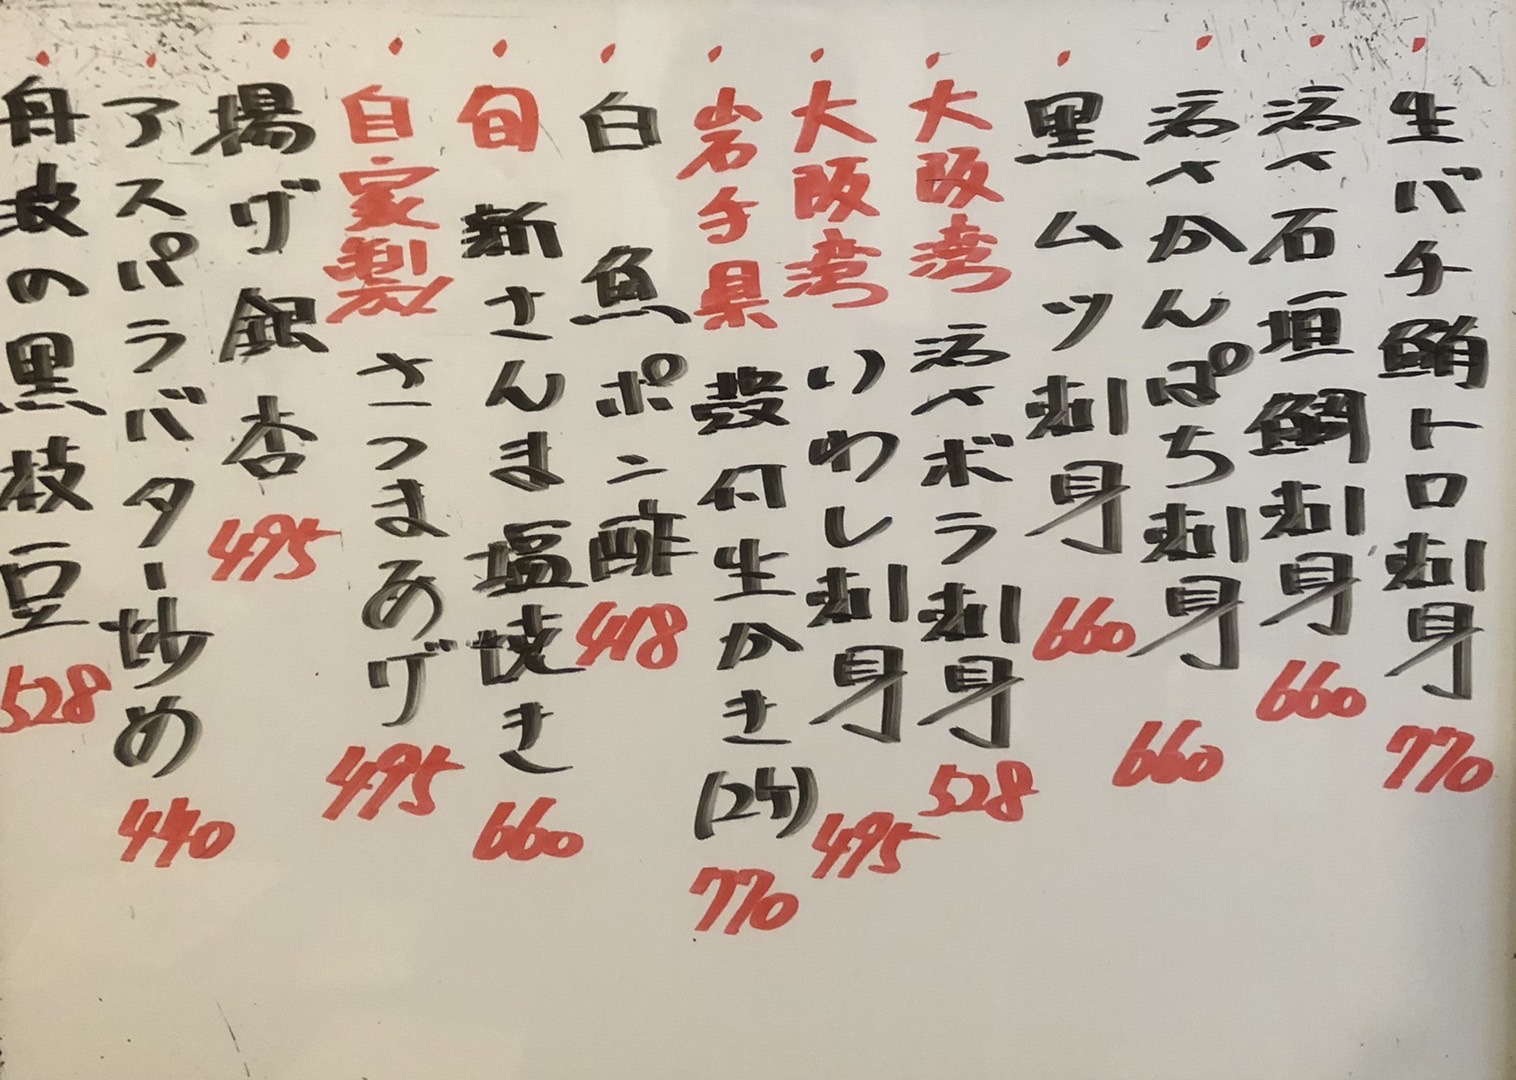 生バチ鮪トロ刺身 770
活〆石垣鯛刺身 660
活〆かんぱち刺身 660
黒ムツ刺身 660
大阪湾 活〆ボラ刺身 528
大阪湾 いわし刺身 495
岩手県 殻付生かき(2ケ) 770
白魚ポン酢 418
旬 新さんま塩焼き 660
自家製 さつまあげ 495
揚げ銀杏 495
アスパラバター炒め 440
丹波の黒枝豆 528